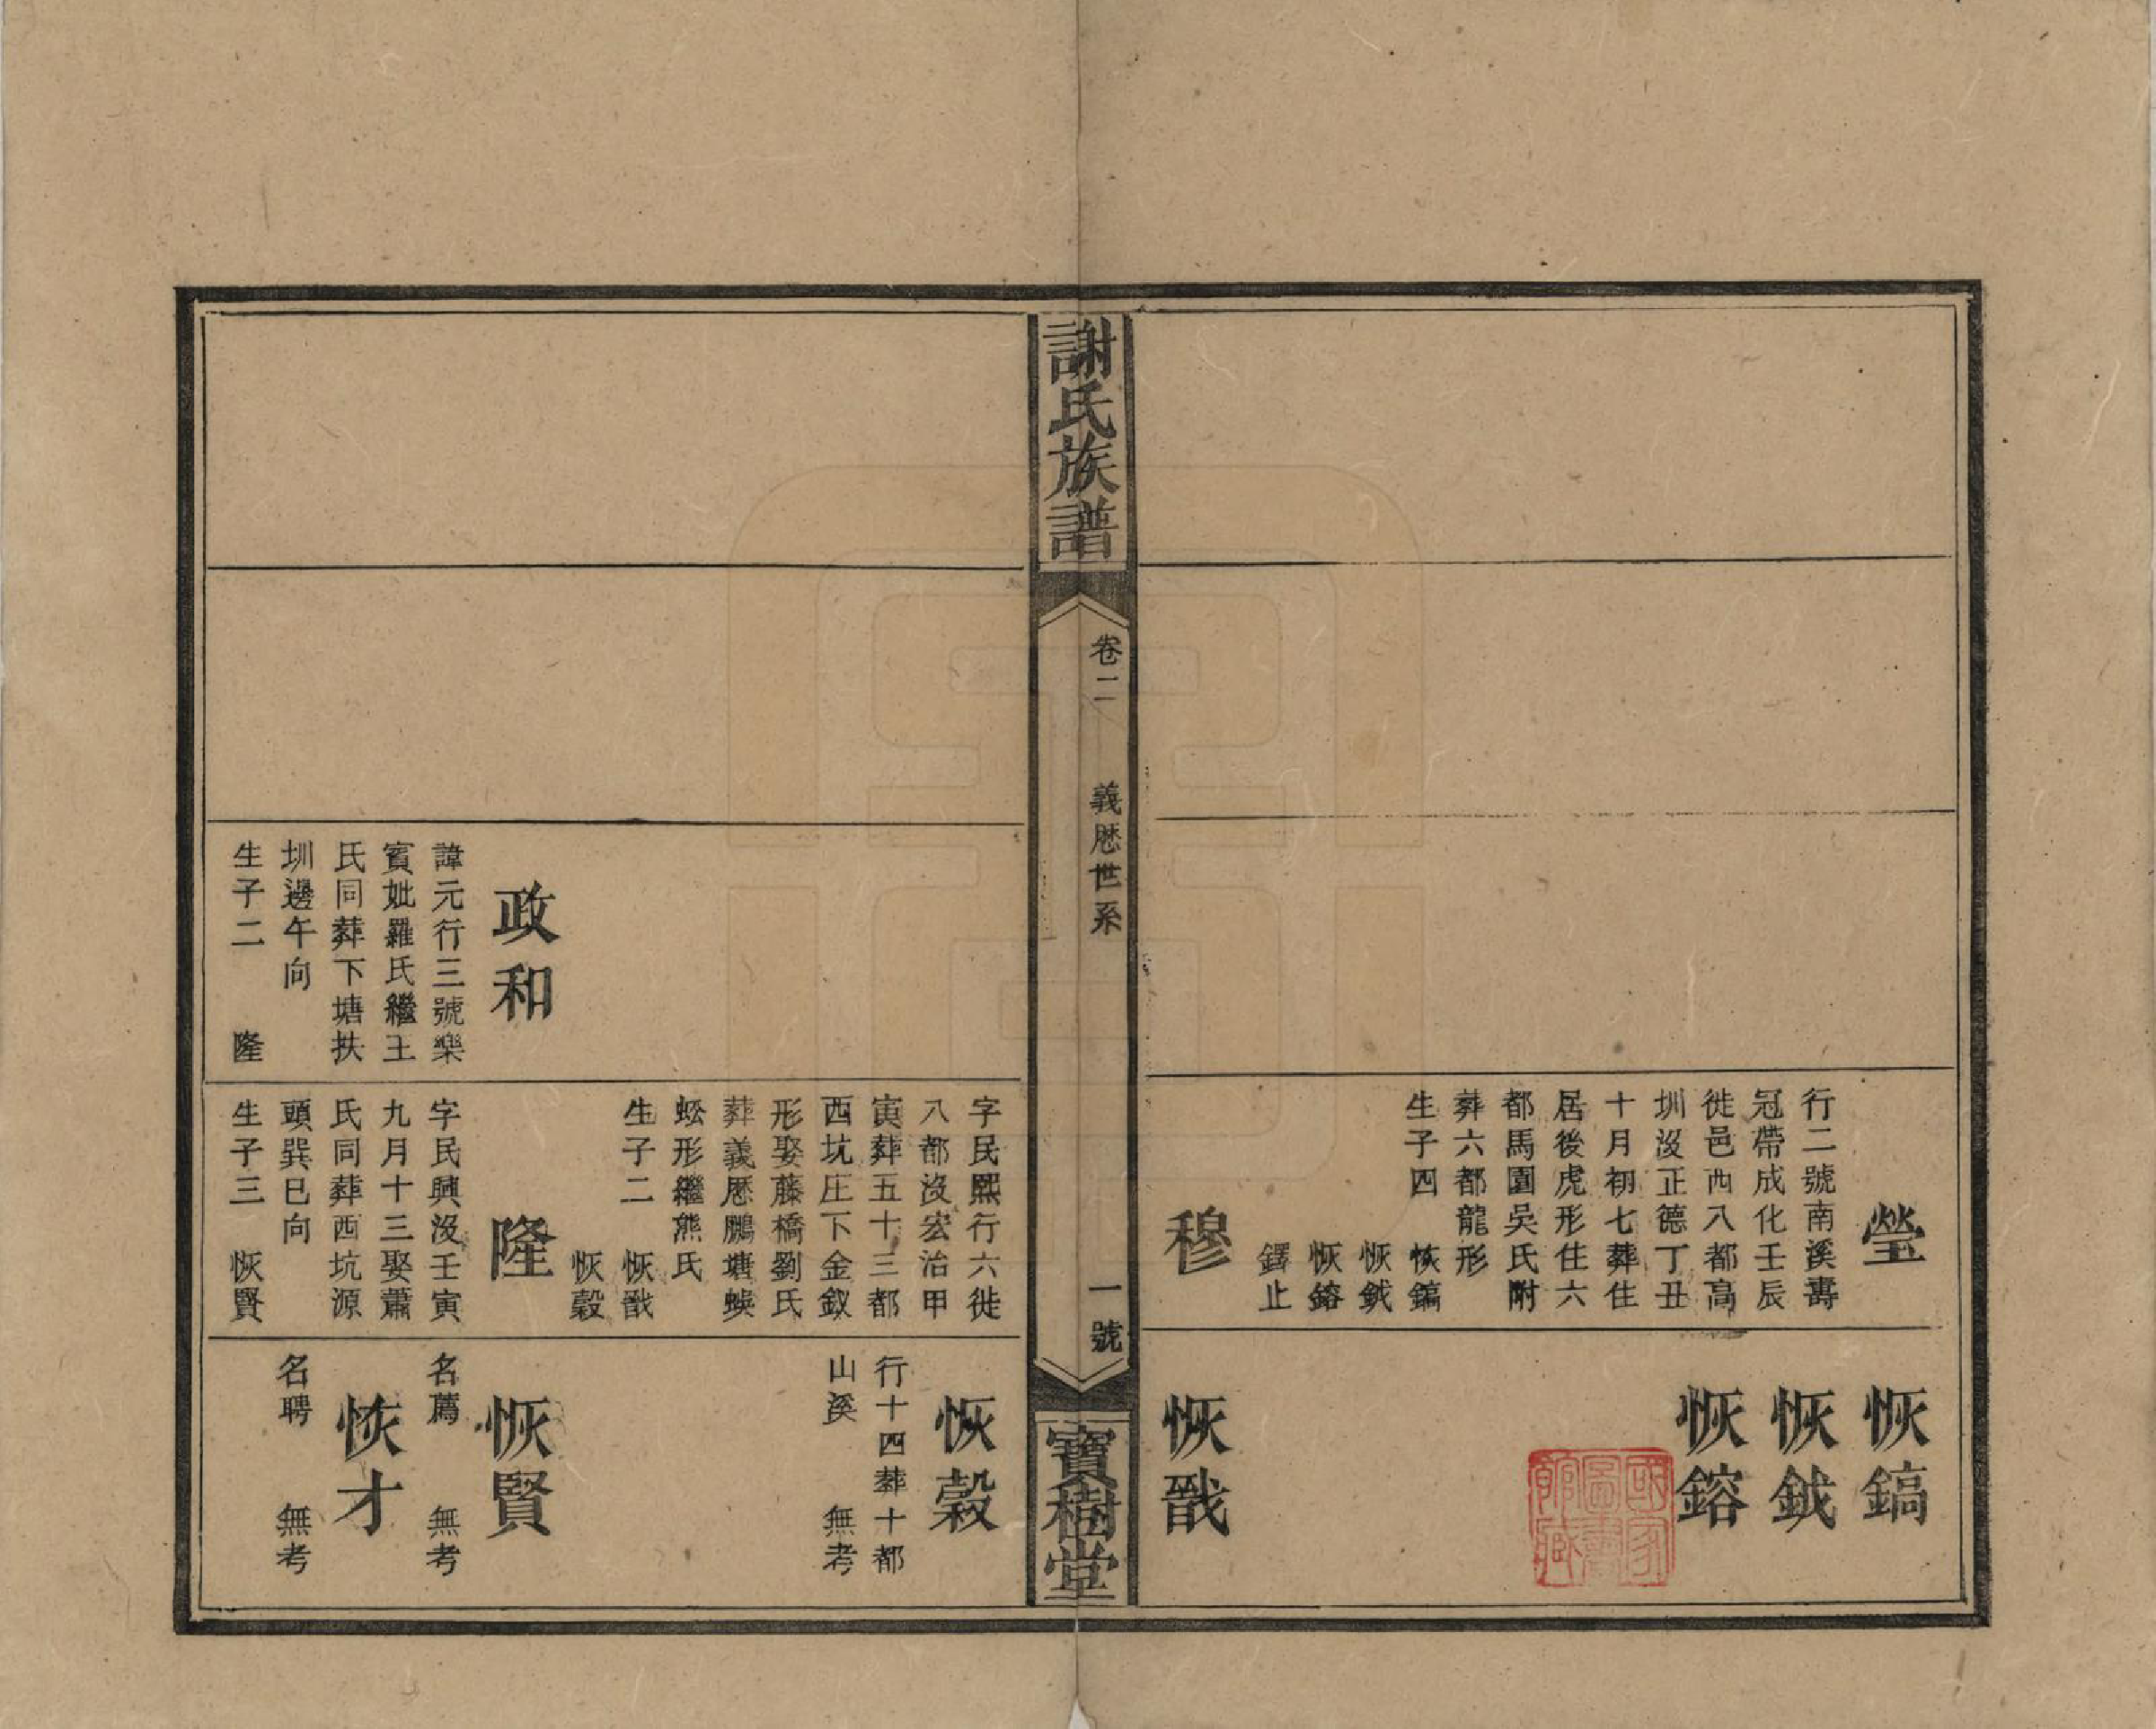 瑩
行二號南溪壽
冠帶成化壬辰
徙邑西八都高
圳沒正德丁丑
十月初七葬住
居後虎形住六
都馬園吳氏附
葬六都龍形
生子四 恢鎬
恢鉞
恢鎔
鐸止
穆
恢鎬
恢鉞
恢鎔
恢戩
國家圖書館藏
謝氏族譜
卷二 義歷世系 一號
寶樹堂
字民熙行六徙
八都沒宏治甲
寅葬五十三都
西坑庄下金釵
形娶藤橋劉氏
葬義歷鵬塘蜈
蚣形繼熊氏
生子二 恢戩
恢穀
恢穀
行十四葬十都
山溪 無考
政和
諱元行三號樂
賓妣羅氏繼王
氏同葬下塘扶
圳邊午向
生子二 隆
隆
字民興沒壬寅
九月十三娶蕭
氏同葬西坑源
頭巽巳向
生子三 恢賢
恢賢
名薦 無考
恢才
名聘 無考